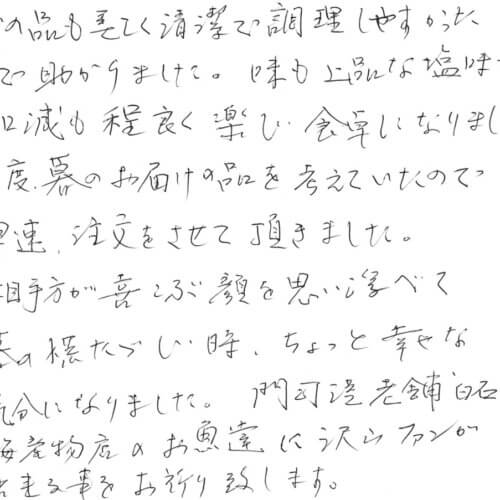 の品も美しく清潔で調理しやすかった
で助かりました。味も上品な塩味
加減も程良く楽しい食卓になりまし
度、暮のお届けの品を考えていたので
速、注文をさせて頂きました。
相手方が喜こぶ顔を思い浮べて
の慌たゞしい時、ちょっと幸せな
気分になりました。門司港老舗白石
海産物店のお魚達に沢山ファンが
出来る事をお祈り致します。